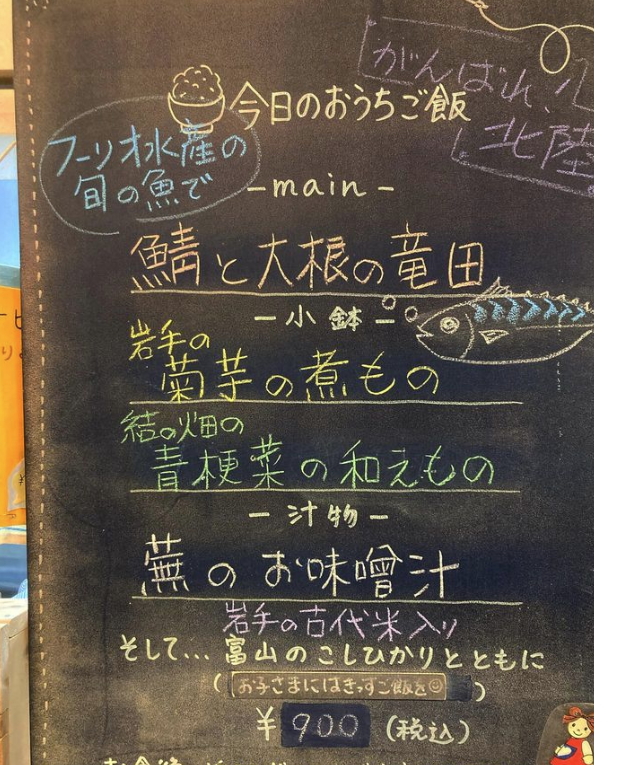 がんばれ、
北陸
今日のおうちご飯
フーリオ水産の
旬の魚で
-main-
鯖と大根の竜田
-小鉢-
岩手の
菊芋の煮もの
結の畑の
青梗菜の和えもの
-汁物-
蕪のお味噌汁
岩手の古代米入り
そして…富山のこしひかりとともに
(お子さまにはきっずご飯を☺)
¥900(税込)